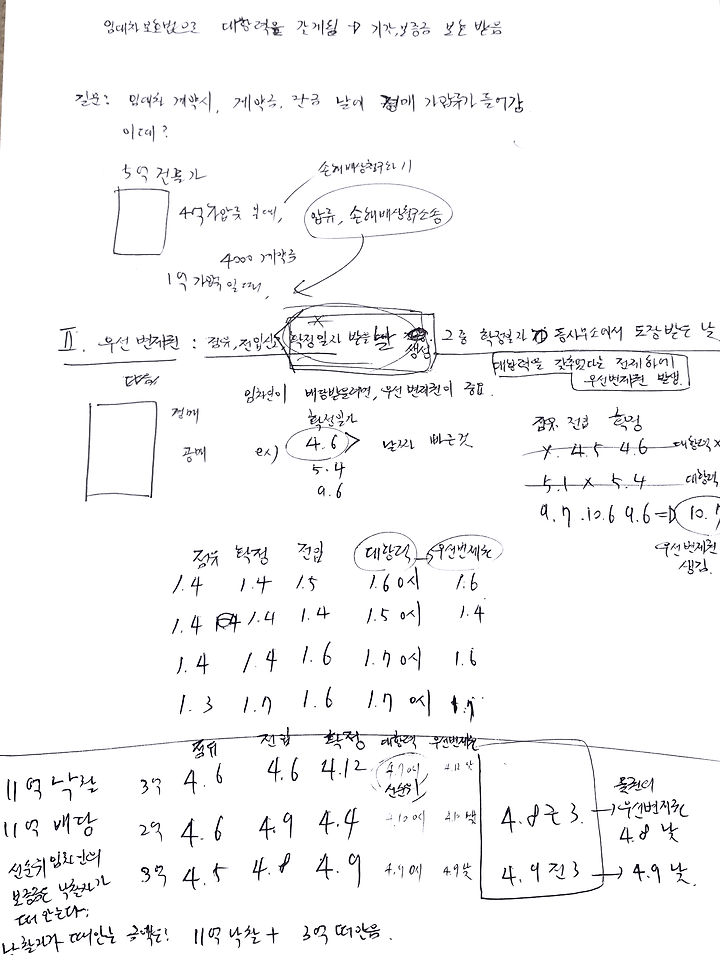 임대차보호법으로 대항력을 갖게됨 → 기간, 보증금 보호 받음
질문: 임대차 계약시, 계약금, 잔금 날에 가압류가 들어감
이때?
5억 전문가
손해배상청구와 //
4억 가압류
압류, 손해배상청구소송
4000 계약금
1억 가압 일때,
II. 우선변제권 : 점유, 전입신, 확정일자 받을 날 생성, 그 중 확정일자 동사무소에서 도장 받는 날
대항력을 갖추었다는 전제하에
우선변제권 발생
임차인이 배당받을려면, 우선변제권이 중요.
경매
공매
확정일자
ex) 4.6 > 날짜 빠른것
5.4
9.6
점유 전입 확정
X. 4.5 4.6 대항력 X
5.1 X 5.4 대항력
9.7 .10.6 9.6 ⇒ 10.7
우선변제권
생김.
점유 확정 전입 대항력 → 우선변제권
1.4 1.4 1.5 1.6 0시 1.6
1.4 1.4 1.4 1.5 0시 1.4
1.4 1.4 1.6 1.7 0시 1.6
1.3 1.7 1.6 1.7 0시 1.7
점유 전입 확정 대항력 우선변제권
11억 낙찰 3억 4.6 4.6 4.12 4.7 0시 4.12 낮
선순위
11억 배당 2억 4.6 4.9 4.4 4.10 0시 4.10 낮
선순위 임차인의
보증금은 낙찰자가
떠 안는다.
3억 4.5 4.8 4.9 4.9 0시 4.9 낮
4.8 근 3. → 물권의
우선변제권
4.8 낮
4.9 전 3 → 4.9 낮
낙찰자가 떠안는 금액은! 11억 낙찰 + 3억 떠안음.